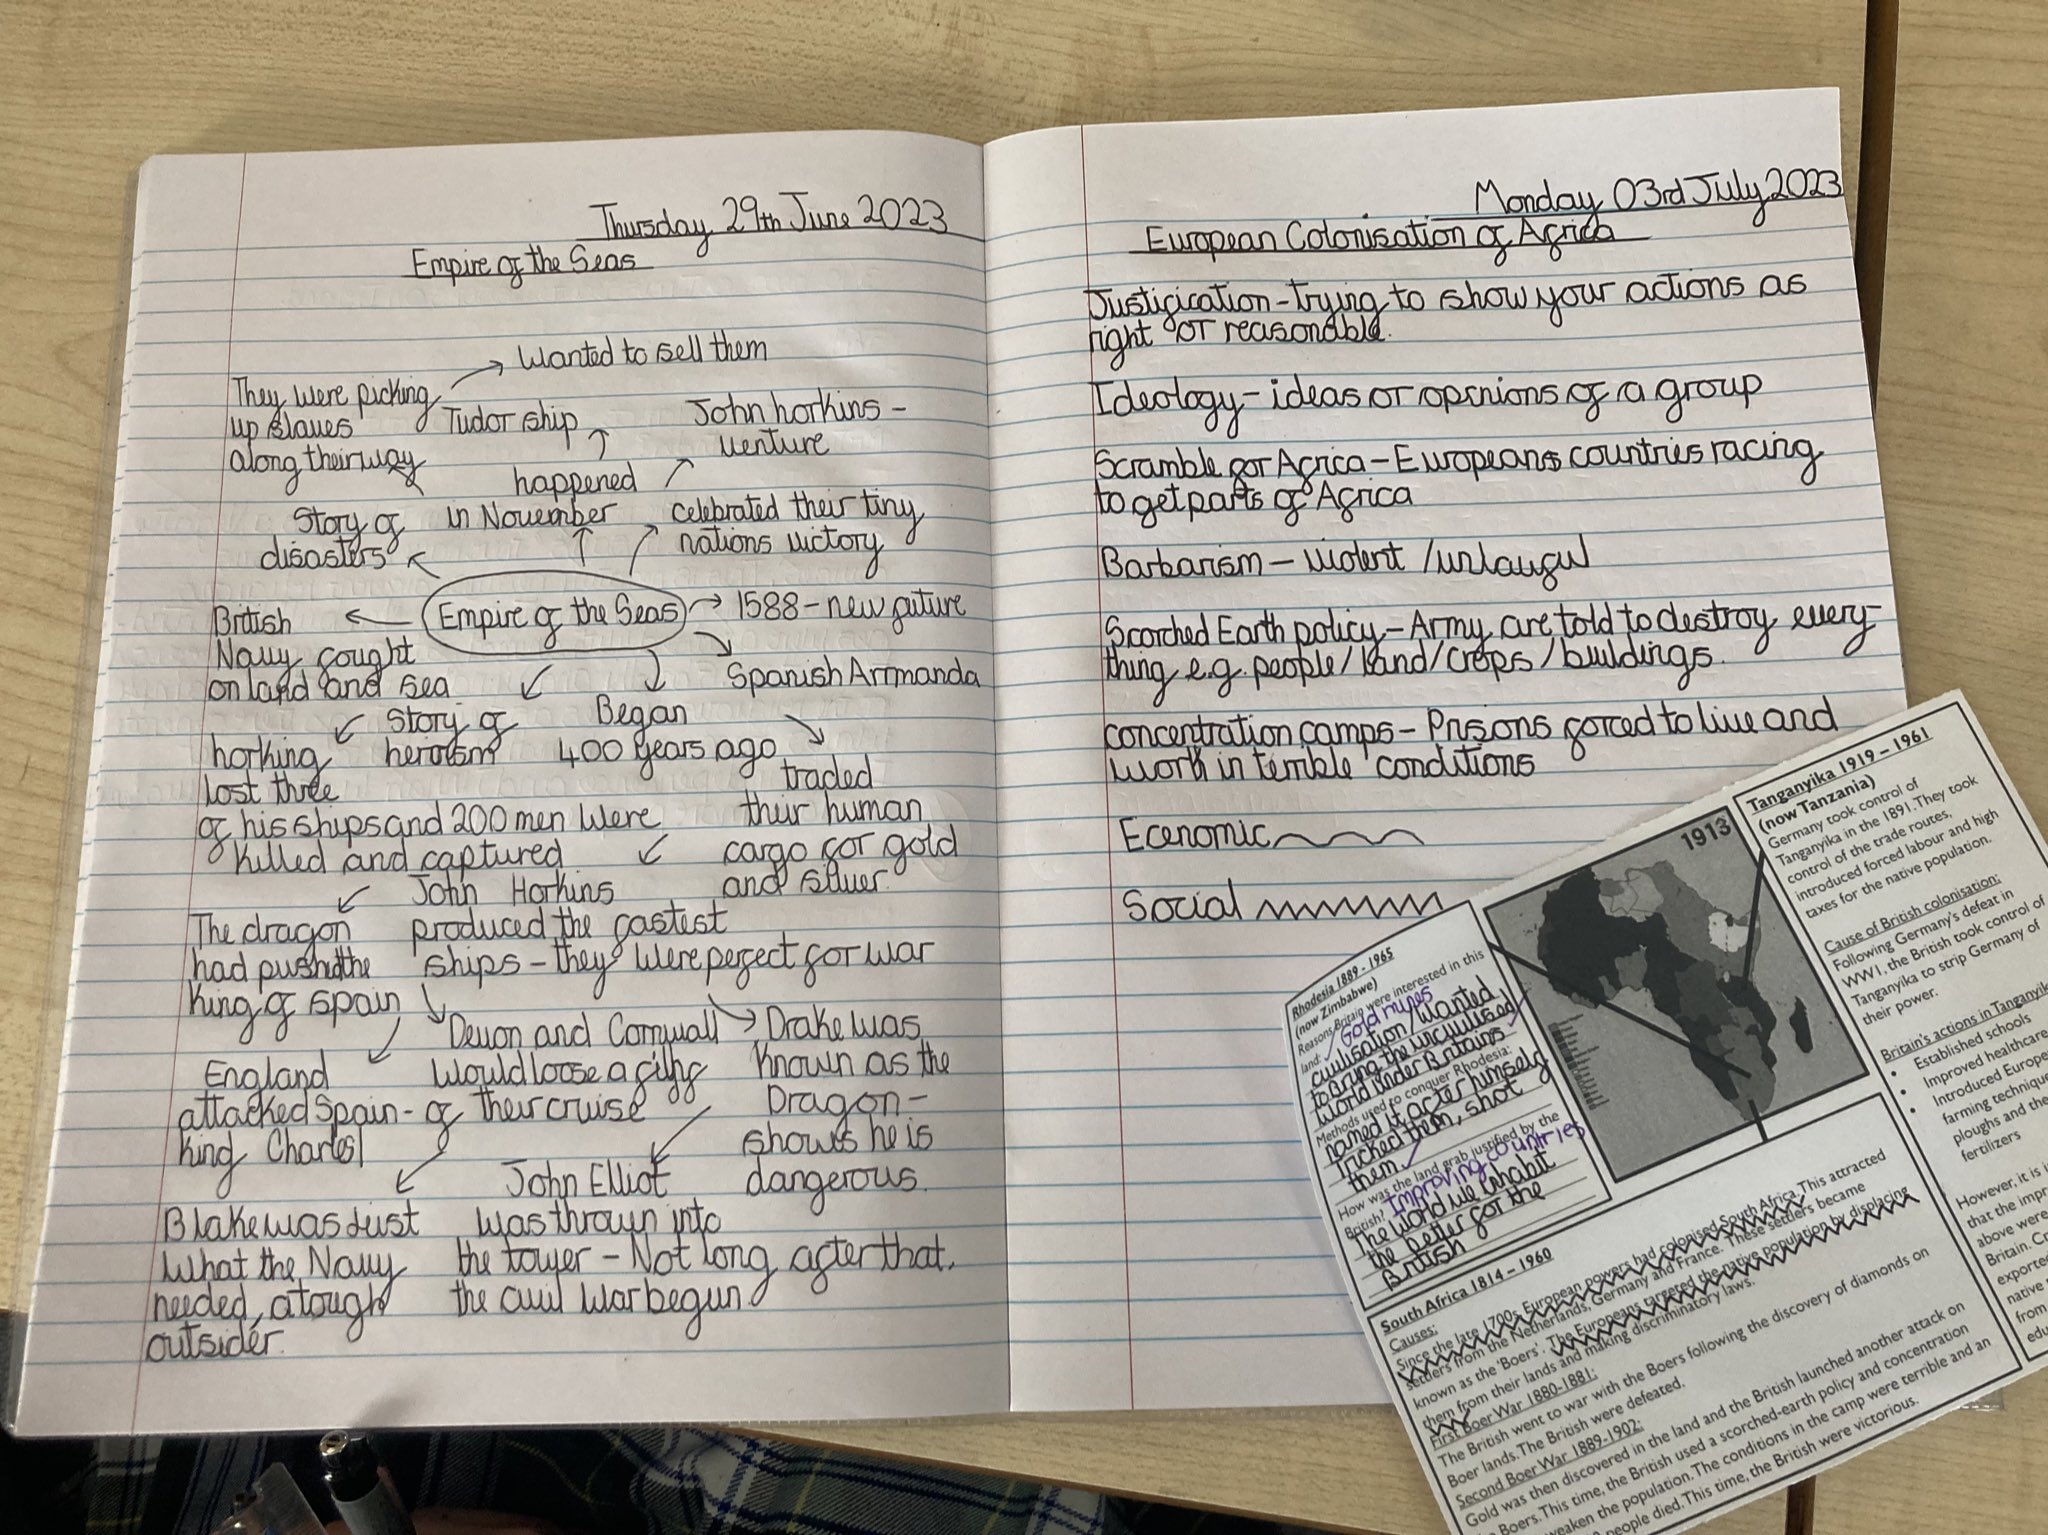 Thursday 29th June 2023
Empire of the Seas
Wanted to sell them
They were picking
up slaves
along their way
Tudor ship
John horkins -
venture
happened
in November
Story of
disasters
celebrated their tiny
nations victory
British
Navy fought
on land and sea
Empire of the Seas
1588 - new future
Spanish Armanda
Story of
heroism
Began
400 years ago
horking
lost three
of his ships and 200 men were
killed and captured
traded
their human
cargo for gold
and silver.
John Horkins
produced the fastest
ships - they were perfect for war
The dragon
had pushed the
King of spain
Devon and Cornwall
would loose a fifth
of their cruise
Drake was
known as the
Dragon -
shows he is
dangerous.
England
attacked Spain -
King Charles I
John Elliot
was thrown into
the tower - Not long after that,
the civil war begun.
Blake was Just
what the Navy
needed, a tough
outsider.
Monday 03rd July 2023
European Colonisation of Africa
Justification - trying to show your actions as
right or reasonable.
Ideology - ideas or opinions of a group
Scramble for Africa - Europeans countries racing
to get parts of Africa
Barbarism - violent / unlawful
Scorched Earth policy - Army are told to destroy every-
thing e.g. people / land / crops / buildings.
concentration camps - Prisons forced to live and
work in terrible conditions
Economic
Social
Rhodesia 1889 - 1965
(now Zimbabwe)
Reasons Britain were interested in this
land: Gold mines
civilisation / wanted
to bring the uncivilised
world under Britains
Methods used to conquer Rhodesia:
named it after himself
tricked them, shot
them
How was the land grab justified by the
British? Improving countries
the world we inhabit
the better for the
British
1913
Tanganyika 1919 - 1961
(now Tanzania)
Germany took control of
Tanganyika in the 1891. They took
control of the trade routes,
introduced forced labour and high
taxes for the native population.
Cause of British colonisation:
Following Germany's defeat in
WW1, the British took control of
Tanganyika to strip Germany of
their power.
Britain's actions in
• Established schools
• Improved healthcare
• Introduced
farming
ploughs and the
fertilizers
However, it is
that the
above were
Britain.
exported
native
from
South Africa 1814 - 1960
Causes:
Since the late 1700s, European powers had colonised South Africa. This attracted
settlers from the Netherlands, Germany and France. These settlers became
known as the 'Boers'. The Europeans targeted the native population by displacing
them from their lands and making discriminatory laws.
First Boer War 1880-1881:
The British went to war with the Boers following the discovery of diamonds on
Boer lands. The British were defeated.
Second Boer War 1889-1902:
Gold was then discovered in the land and the British launched another attack on
Boers. This time, the British used a scorched-earth policy and concentration
weaken the population. The conditions in the camp were terrible and an
people died. This time, the British were victorious.